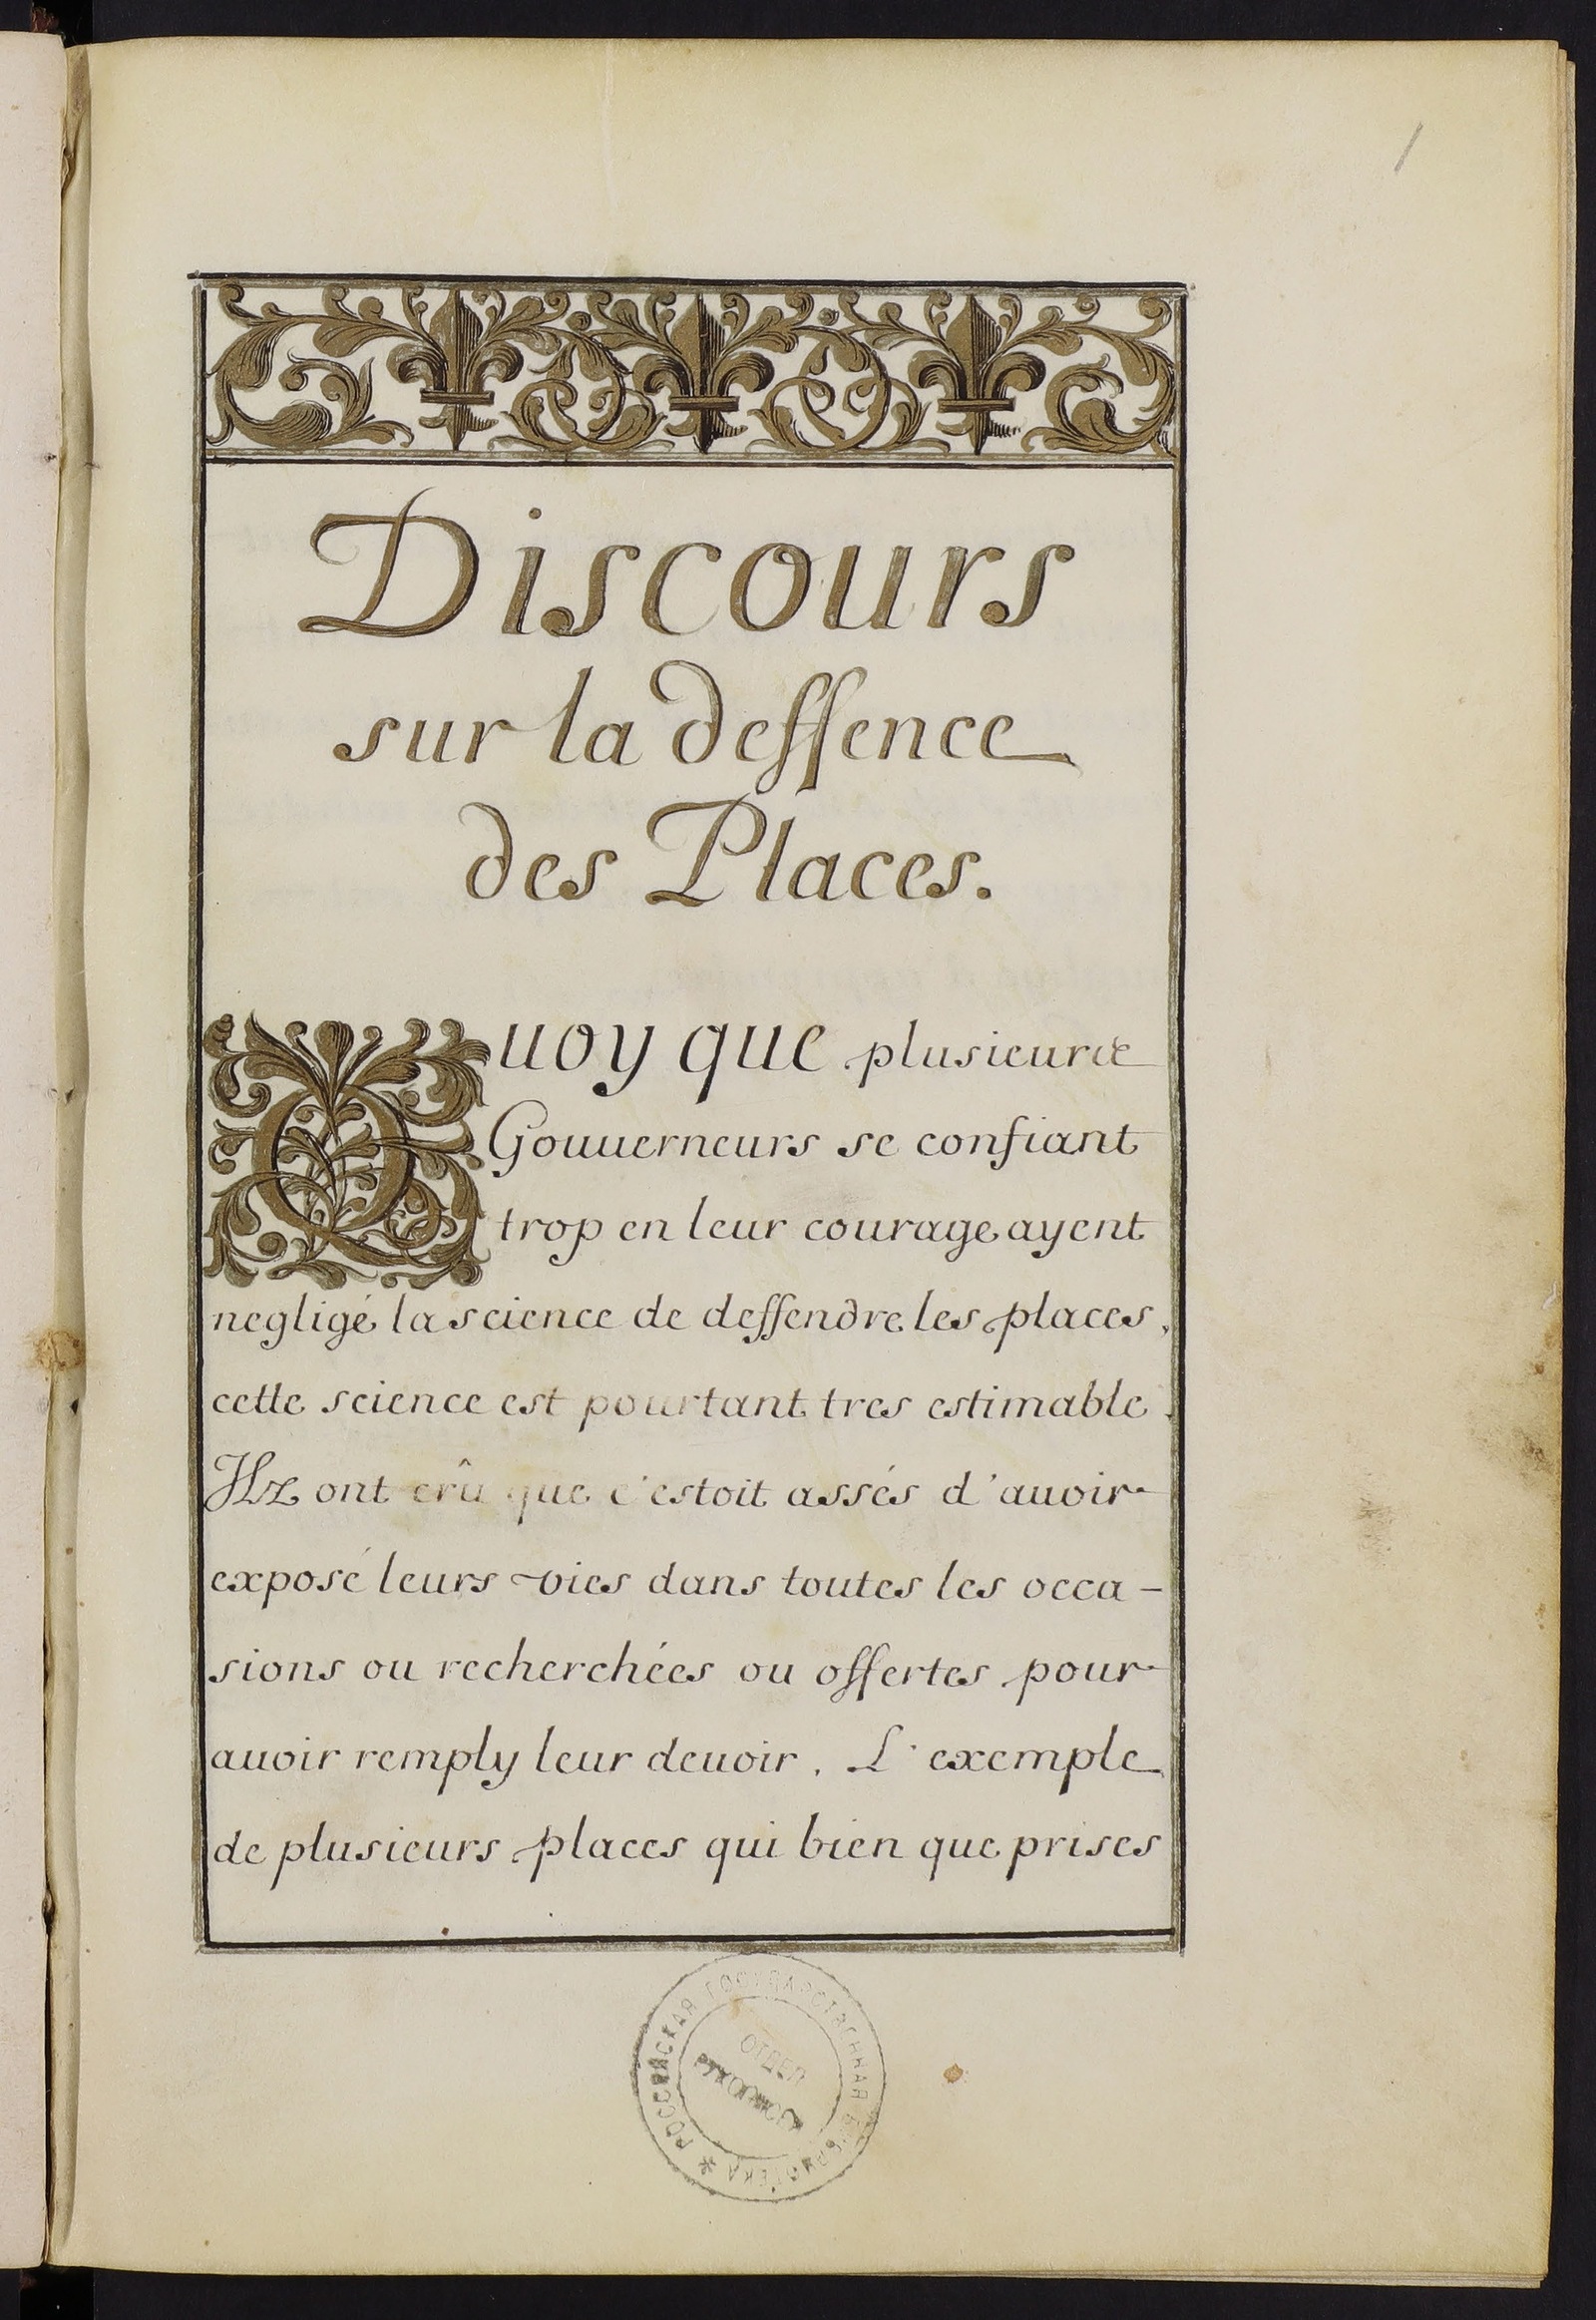 1
Discours
sur la deffence
des Places.
Quoy que plusieurs
Gouuerneurs se confiant
trop en leur courage ayent
negligé la science de deffendre les places,
cette science est pourtant tres estimable.
Ilz ont crû que c'estoit assés d'auoir
exposé leurs vies dans toutes les occa-
sions ou recherchées ou offertes pour
auoir remply leur deuoir. L'exemple
de plusieurs places qui bien que prises
* РОССИЙСКАЯ ГОСУДАРСТВЕННАЯ БИБЛИОТЕКА
ОТДЕЛ
РУКОПИСЕЙ